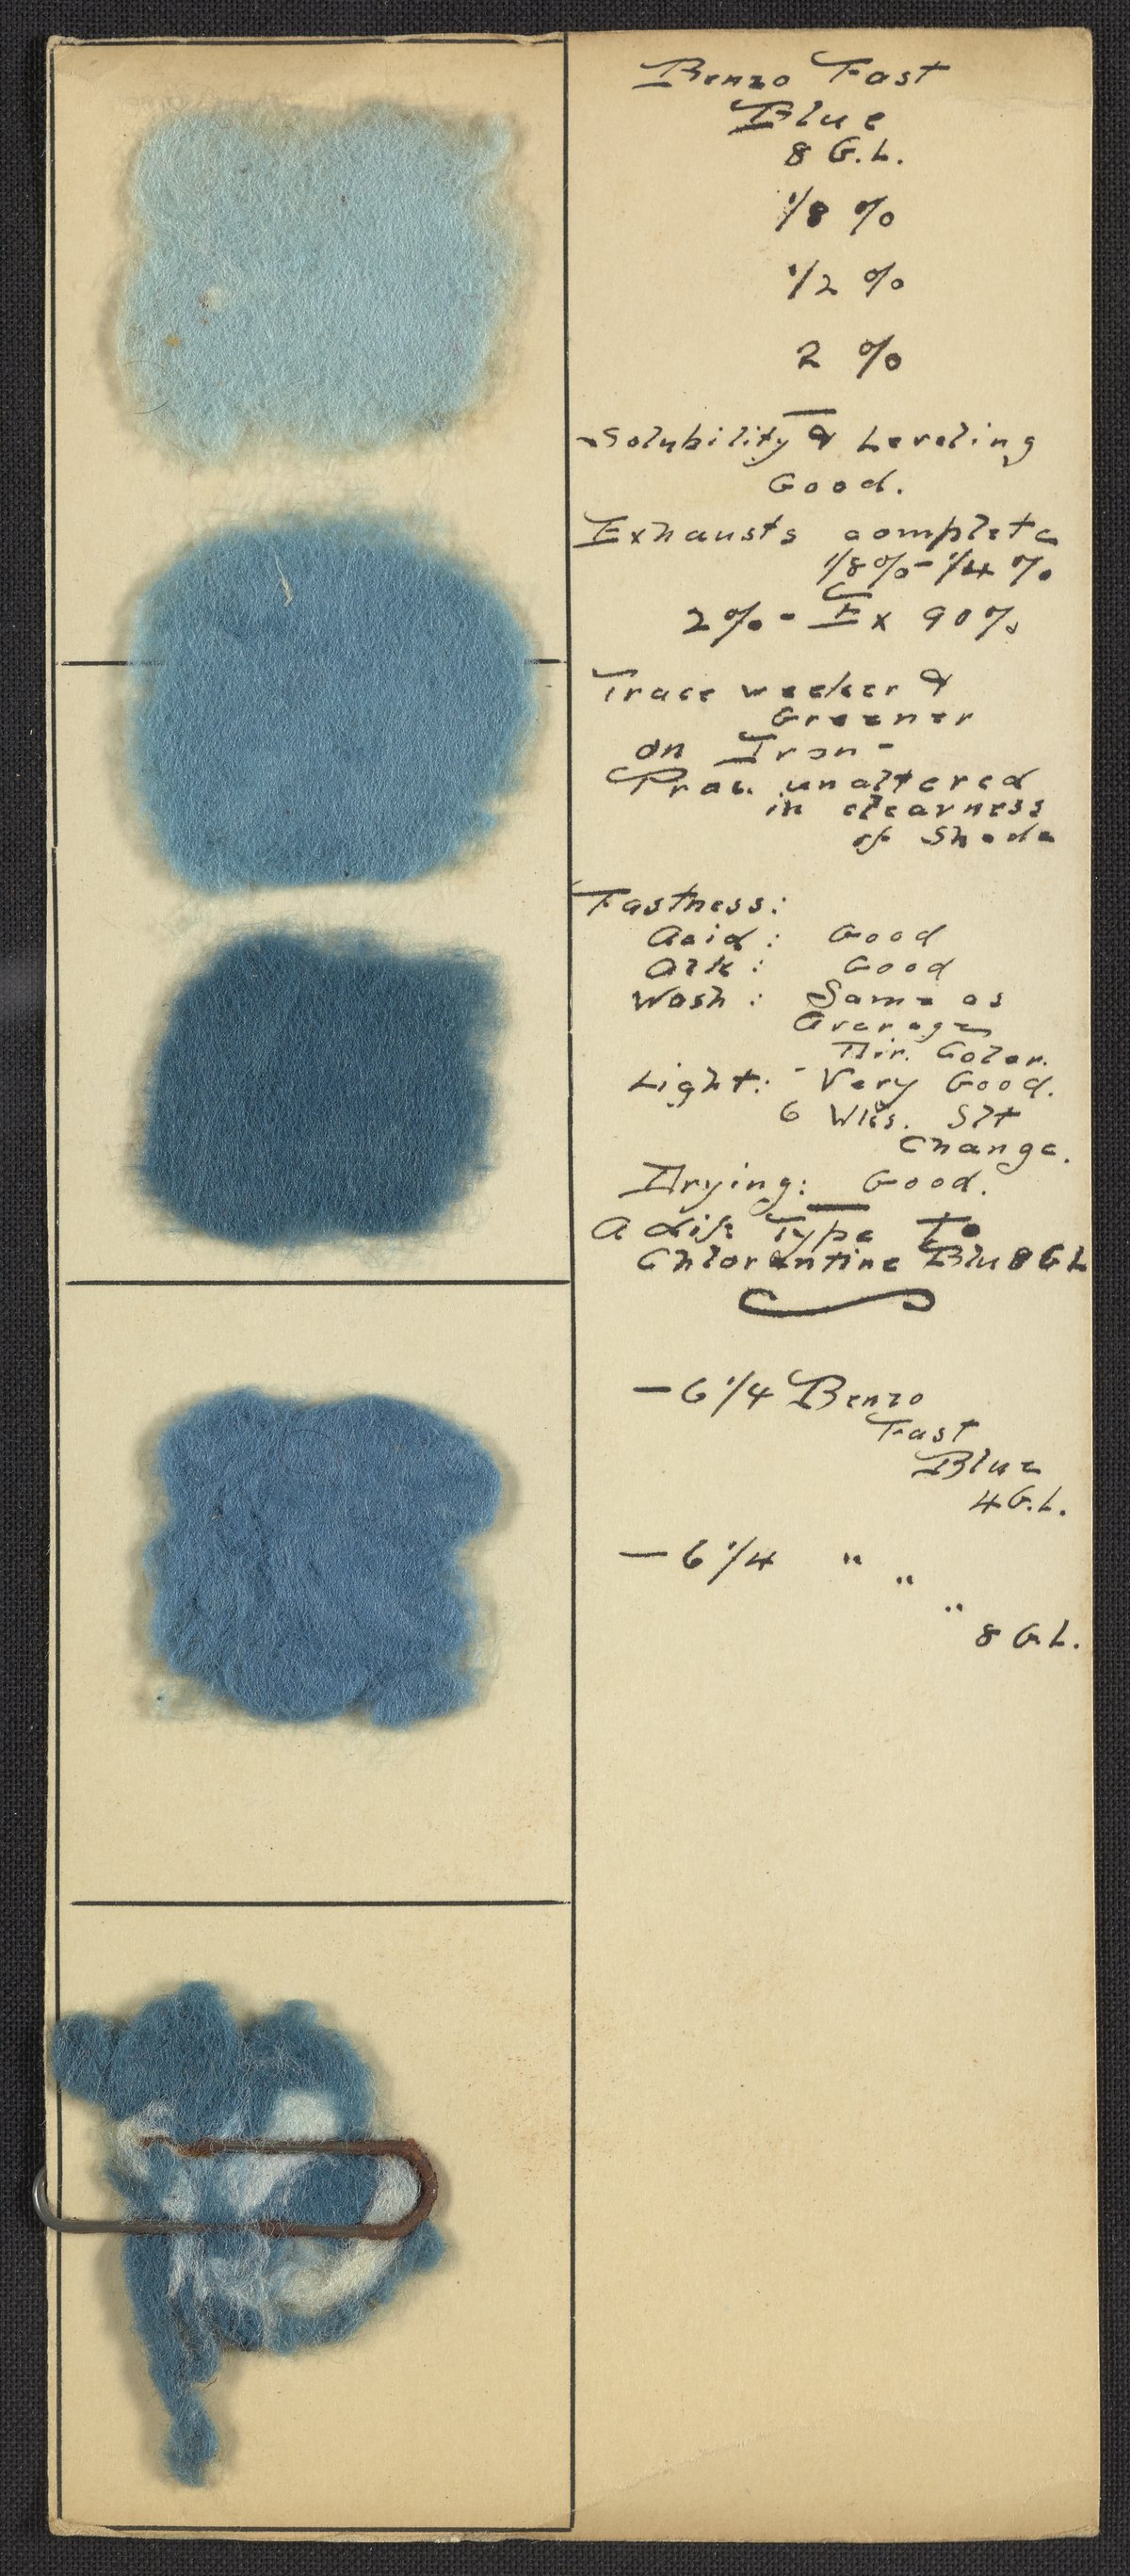 Benzo Fast
Blue
8 G.L.
1/8 %
1/2 %
2 %
- Solubility & Leveling
Good.
Exhausts complete
1/8% - 1/4 %
2% - Ex 90%
Trace weeker &
Greener
on Iron -
Prac. unaltered
in clearness
of Shade
Fastness:
Acid: Good
Alk: Good
Wash: Same as
Average
Dir. Color.
Light: - Very Good.
6 Wks. Slt
Change.
Drying: Good.
A dif. Type To
Chlorantine Blu 8GL
- 6 1/4 Benzo
Fast
Blue
4 G.L.
- 6 1/4 " "
"
8 G.L.